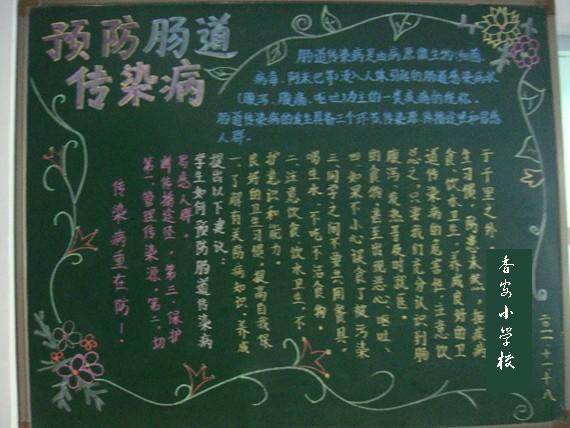 预防肠道
传染病
肠道传染病是由病原微生物(如细菌、
病毒、阿米巴等)浸入人体引起的肠道感染病状
(腹泻、腹痛、呕吐)为主的一类疾病的统称。
肠道传染病的发生具备三个环节传染源、传播途径和易感
人群。
于千里之外。
生习惯、防患未然,拒疾病
食、饮水卫生,养成良好的卫
道传染病的危害性,注意饮
总之,只要我们充分认识到肠
腹泻、发热等及时就医。
的食物,甚至出现恶心、呕吐、
四、如果不小心误食了被污染
三、同学之间不要共用餐具。
喝生水,不吃不洁食物。
二、注意饮食、饮水卫生,不
护意识和能力。
良好的卫生习惯,提高自我保
一、了解有关防病知识,养成
提出以下建议:
学生如何预防肠道传染病
易感人群。
断传播途径,第三、保护
第一、管理传染源,第二、切
传染病重在防!
香安小学校
二〇一一十一十八